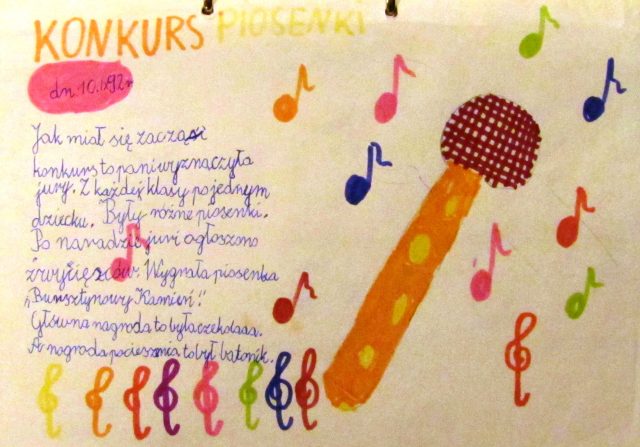 KONKURS PIOSENKI
dn. 10.IX92r
Jak miał się zacząść
konkurs to pani wyznaczyła
jury. Z każdej klasy po jednym
dziecku. Były różne piosenki.
Po naradzie juri ogłoszono
zwycięzców. Wygnała piosenka
"Bursztynowy Kamień".
Główna nagroda to była czekolada.
A nagroda pocieszenia to był batonik.